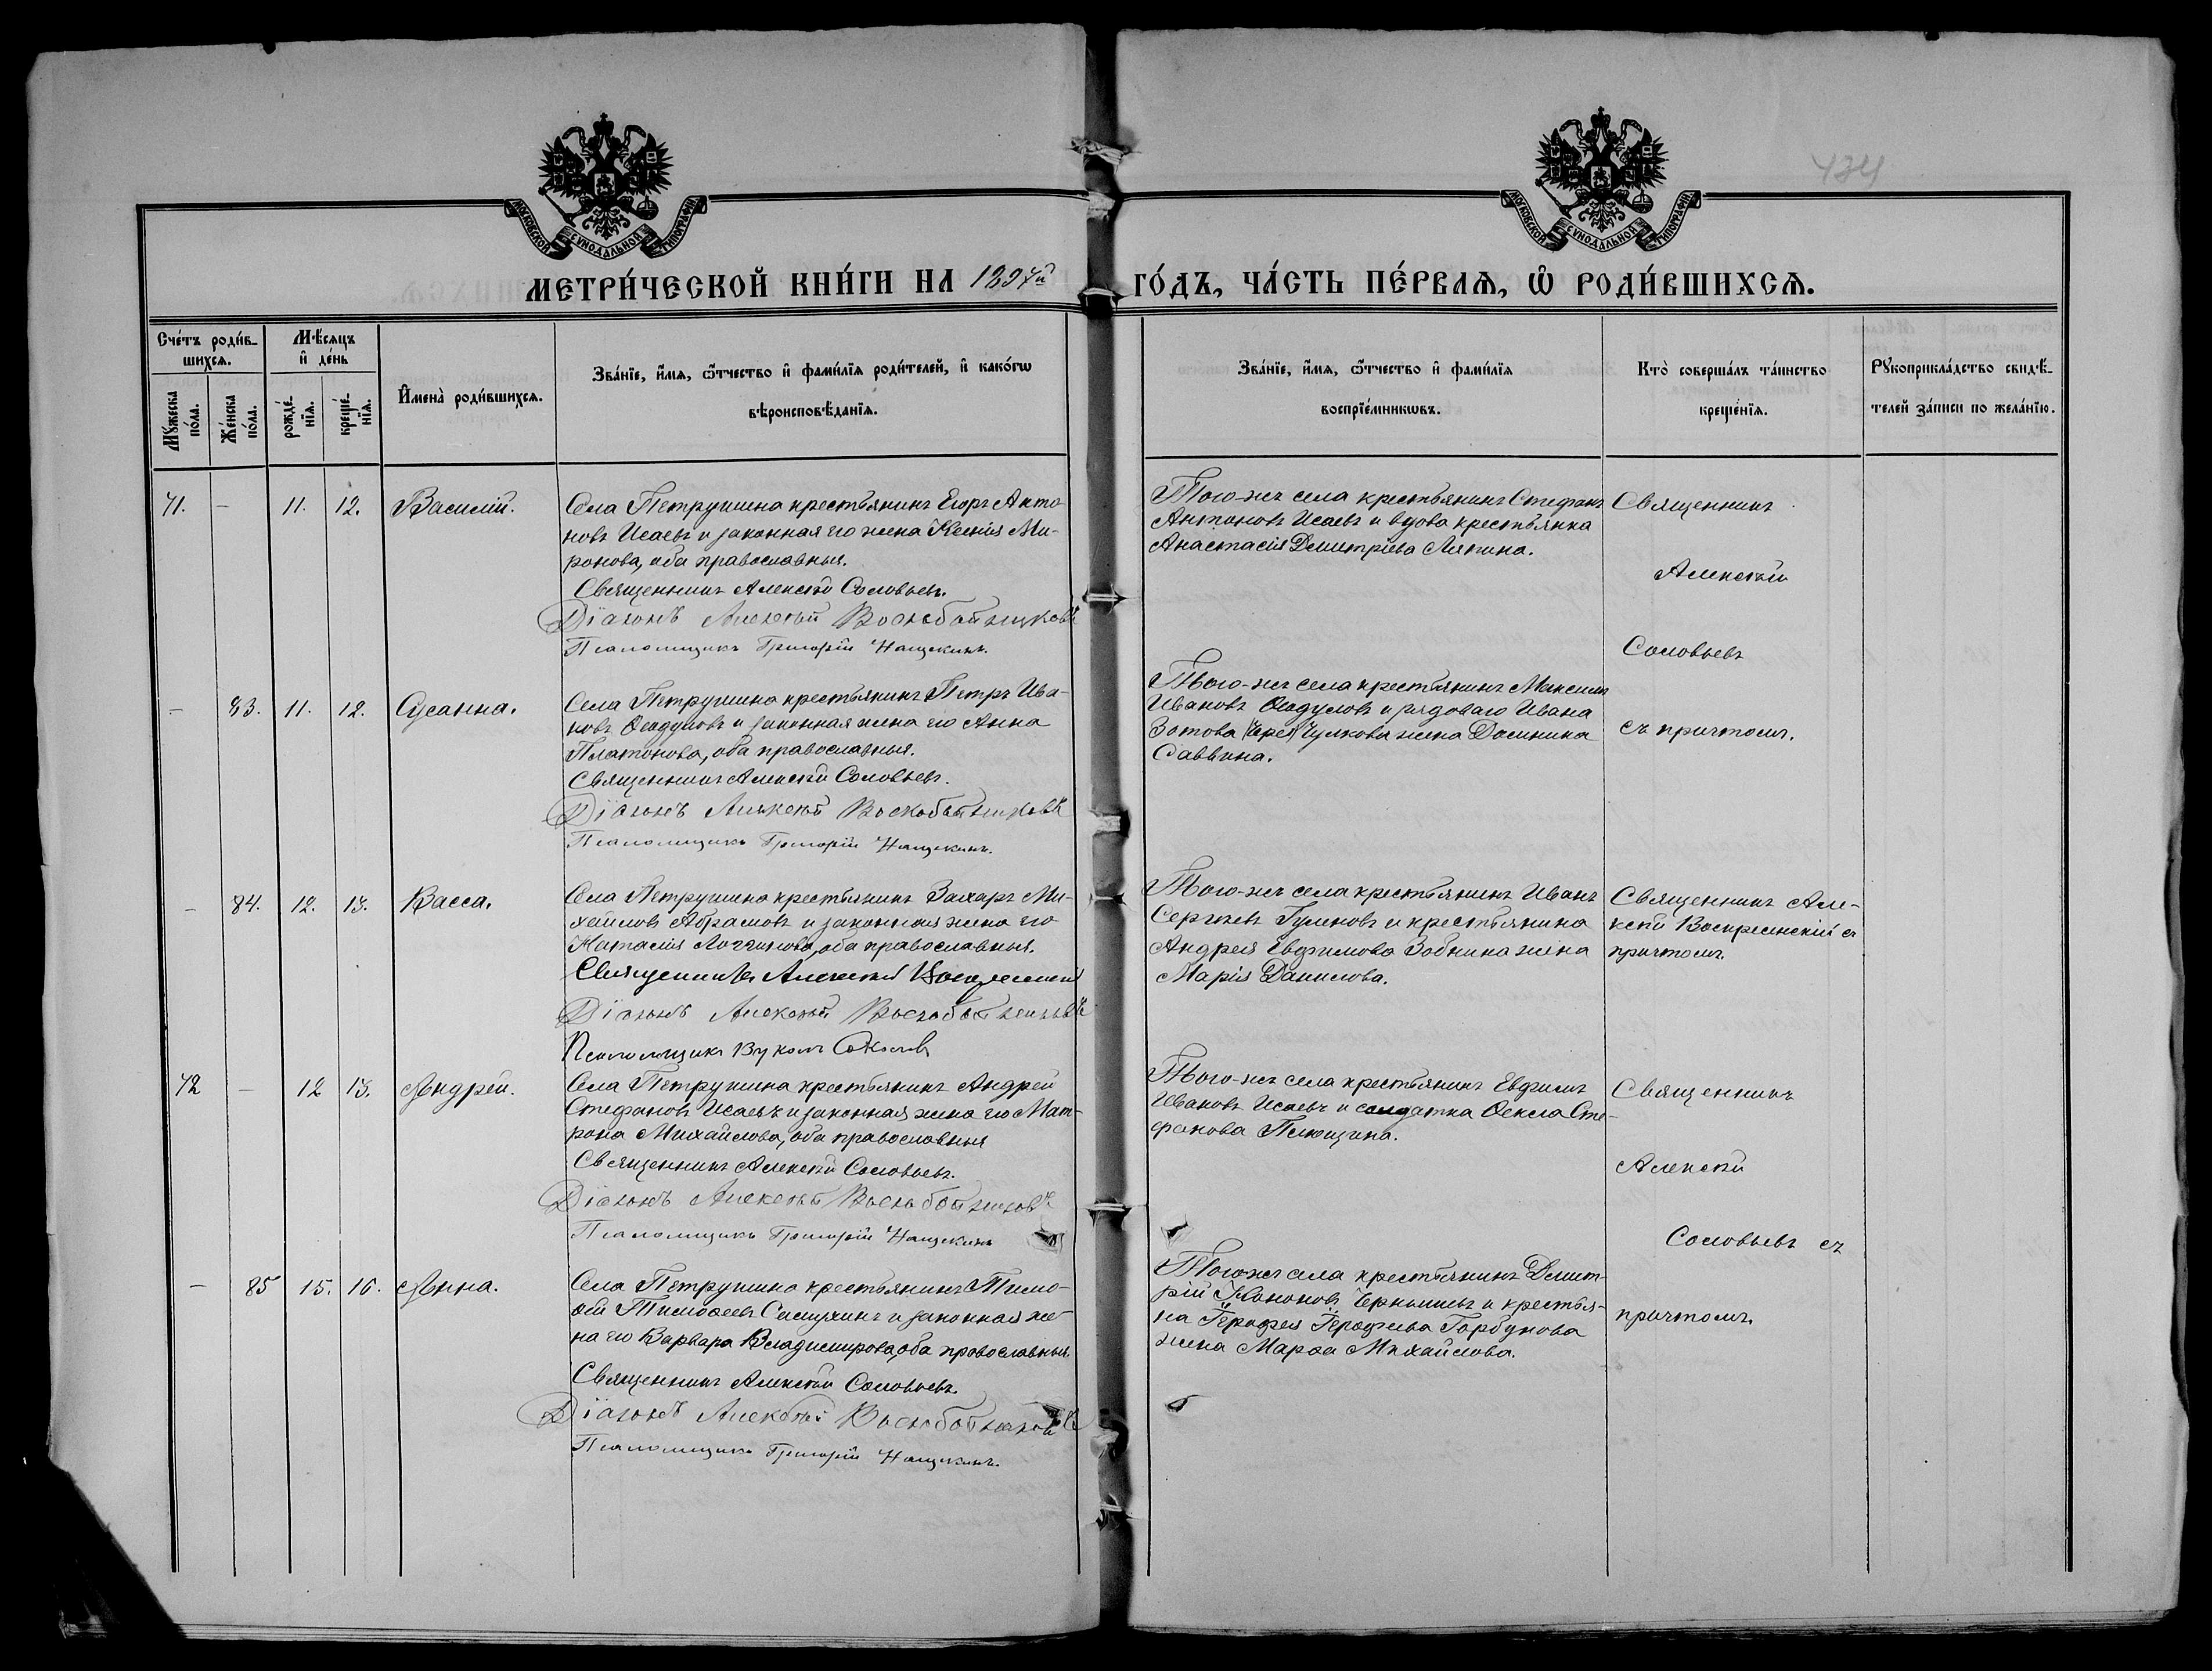 434
МОСКОВСКОЙ СѴНОДАЛЬНОЙ ТИПОГРАФІИ
МОСКОВСКОЙ СѴНОДАЛЬНОЙ ТИПОГРАФІИ
МЕТРИ́ЧЕСКОЙ КНИ́ГИ НА 1897й ГО́ДЪ, ЧА́СТЬ ПЕ́РВАѦ, Ѡ҆ РОДИ́ВШИХСѦ.
Сче́тъ роди́в-
шихсѧ.
Мꙋ́жеска по́ла.
Же́нска по́ла.
Мѣ́сѧцъ
и҆ де́нь
рожде́-
нїѧ.
креще́-
нїѧ.
И҆мена̀ роди́вшихсѧ.
Зва́нїе, и҆́мѧ, ѻ҆́тчество и҆ фами́лїѧ роди́телей, и҆ како́гѡ
вѣроисповѣ́данїѧ.
Зва́нїе, и҆́мѧ, ѻ҆́тчество и҆ фами́лїѧ
воспрїе́мникѡвъ.
Кто̀ соверша́лъ та́инство
креще́нїѧ.
Рꙋкоприкла́дство свидѣ́-
телей за́писи по жела́нїю.
71. – 11. 12. Василій.
Села Петрушина крестьянинъ Егоръ Анто-
новъ Исаевъ и законная его жена Ксенія Ми-
ронова, оба православные.
Священникъ Алексѣй Соловьевъ.
Діаконъ Алексѣй Воскобойниковъ
Псаломщикъ Григорій Нащекинъ.
Того-же села крестьянинъ Стефанъ
Антоновъ Исаевъ и вдова крестьянка
Анастасія Димитріева Ляпина.
Священникъ
Алексѣй
Соловьевъ
съ причтомъ.
– 83. 11. 12. Сусанна.
Села Петрушина крестьянинъ Петръ Ива-
новъ Ѳеадуловъ и законная жена его Анна
Платонова, оба православные.
Священникъ Алексѣй Соловьевъ.
Діаконъ Алексѣй Воскобойниковъ
Псаломщикъ Григорій Нащекинъ.
Того-же села крестьянинъ Максимъ
Ивановъ Ѳеадуловъ и рядоваго Ивана
Зотова Чулкова жена Домника
Саввина.
– 84. 12. 13. Васса.
Села Петрушина крестьянинъ Захаръ Ми-
хайловъ Абрамовъ и законная жена его
Наталія Логгинова, оба православные.
Священникъ Алексѣй Воскресенскій
Діаконъ Алексѣй Воскобойниковъ
Псаломщикъ Вуколъ Соколовъ
Того-же села крестьянинъ Иванъ
Сергѣевъ Гуменовъ и крестьянина
Андрея Евфимова Зобнина жена
Марія Данилова.
Священникъ Але-
ксѣй Воскресенскій съ
причтомъ.
72 – 12 13. Андрей.
Села Петрушина крестьянинъ Андрей
Стефановъ Исаевъ и законная жена его Мат-
рона Михайлова, оба православные
Священникъ Алексѣй Соловьевъ.
Діаконъ Алексѣй Воскобойниковъ
Псаломщикъ Григорій Нащекинъ
Того-же села крестьянинъ Евфимъ
Ивановъ Исаевъ и солдатка Ѳекла Сте-
фанова Плющина.
Священникъ
Алексѣй
Соловьевъ съ
причтомъ.
– 85 15. 16. Анна.
Села Петрушина крестьянинъ Тимо-
ѳей Тимоѳеевъ Самухинъ и законная же-
на его Варвара Владимирова, оба православные
Священникъ Алексѣй Соловьевъ.
Діаконъ Алексѣй Воскобойниковъ
Псаломщикъ Григорій Нащекинъ.
Того-же села крестьянинъ Димит-
рій Кононовъ Чернышевъ и крестья-
на Іероѳея Іероѳеева Горбунова
жена Марѳа Михайлова.